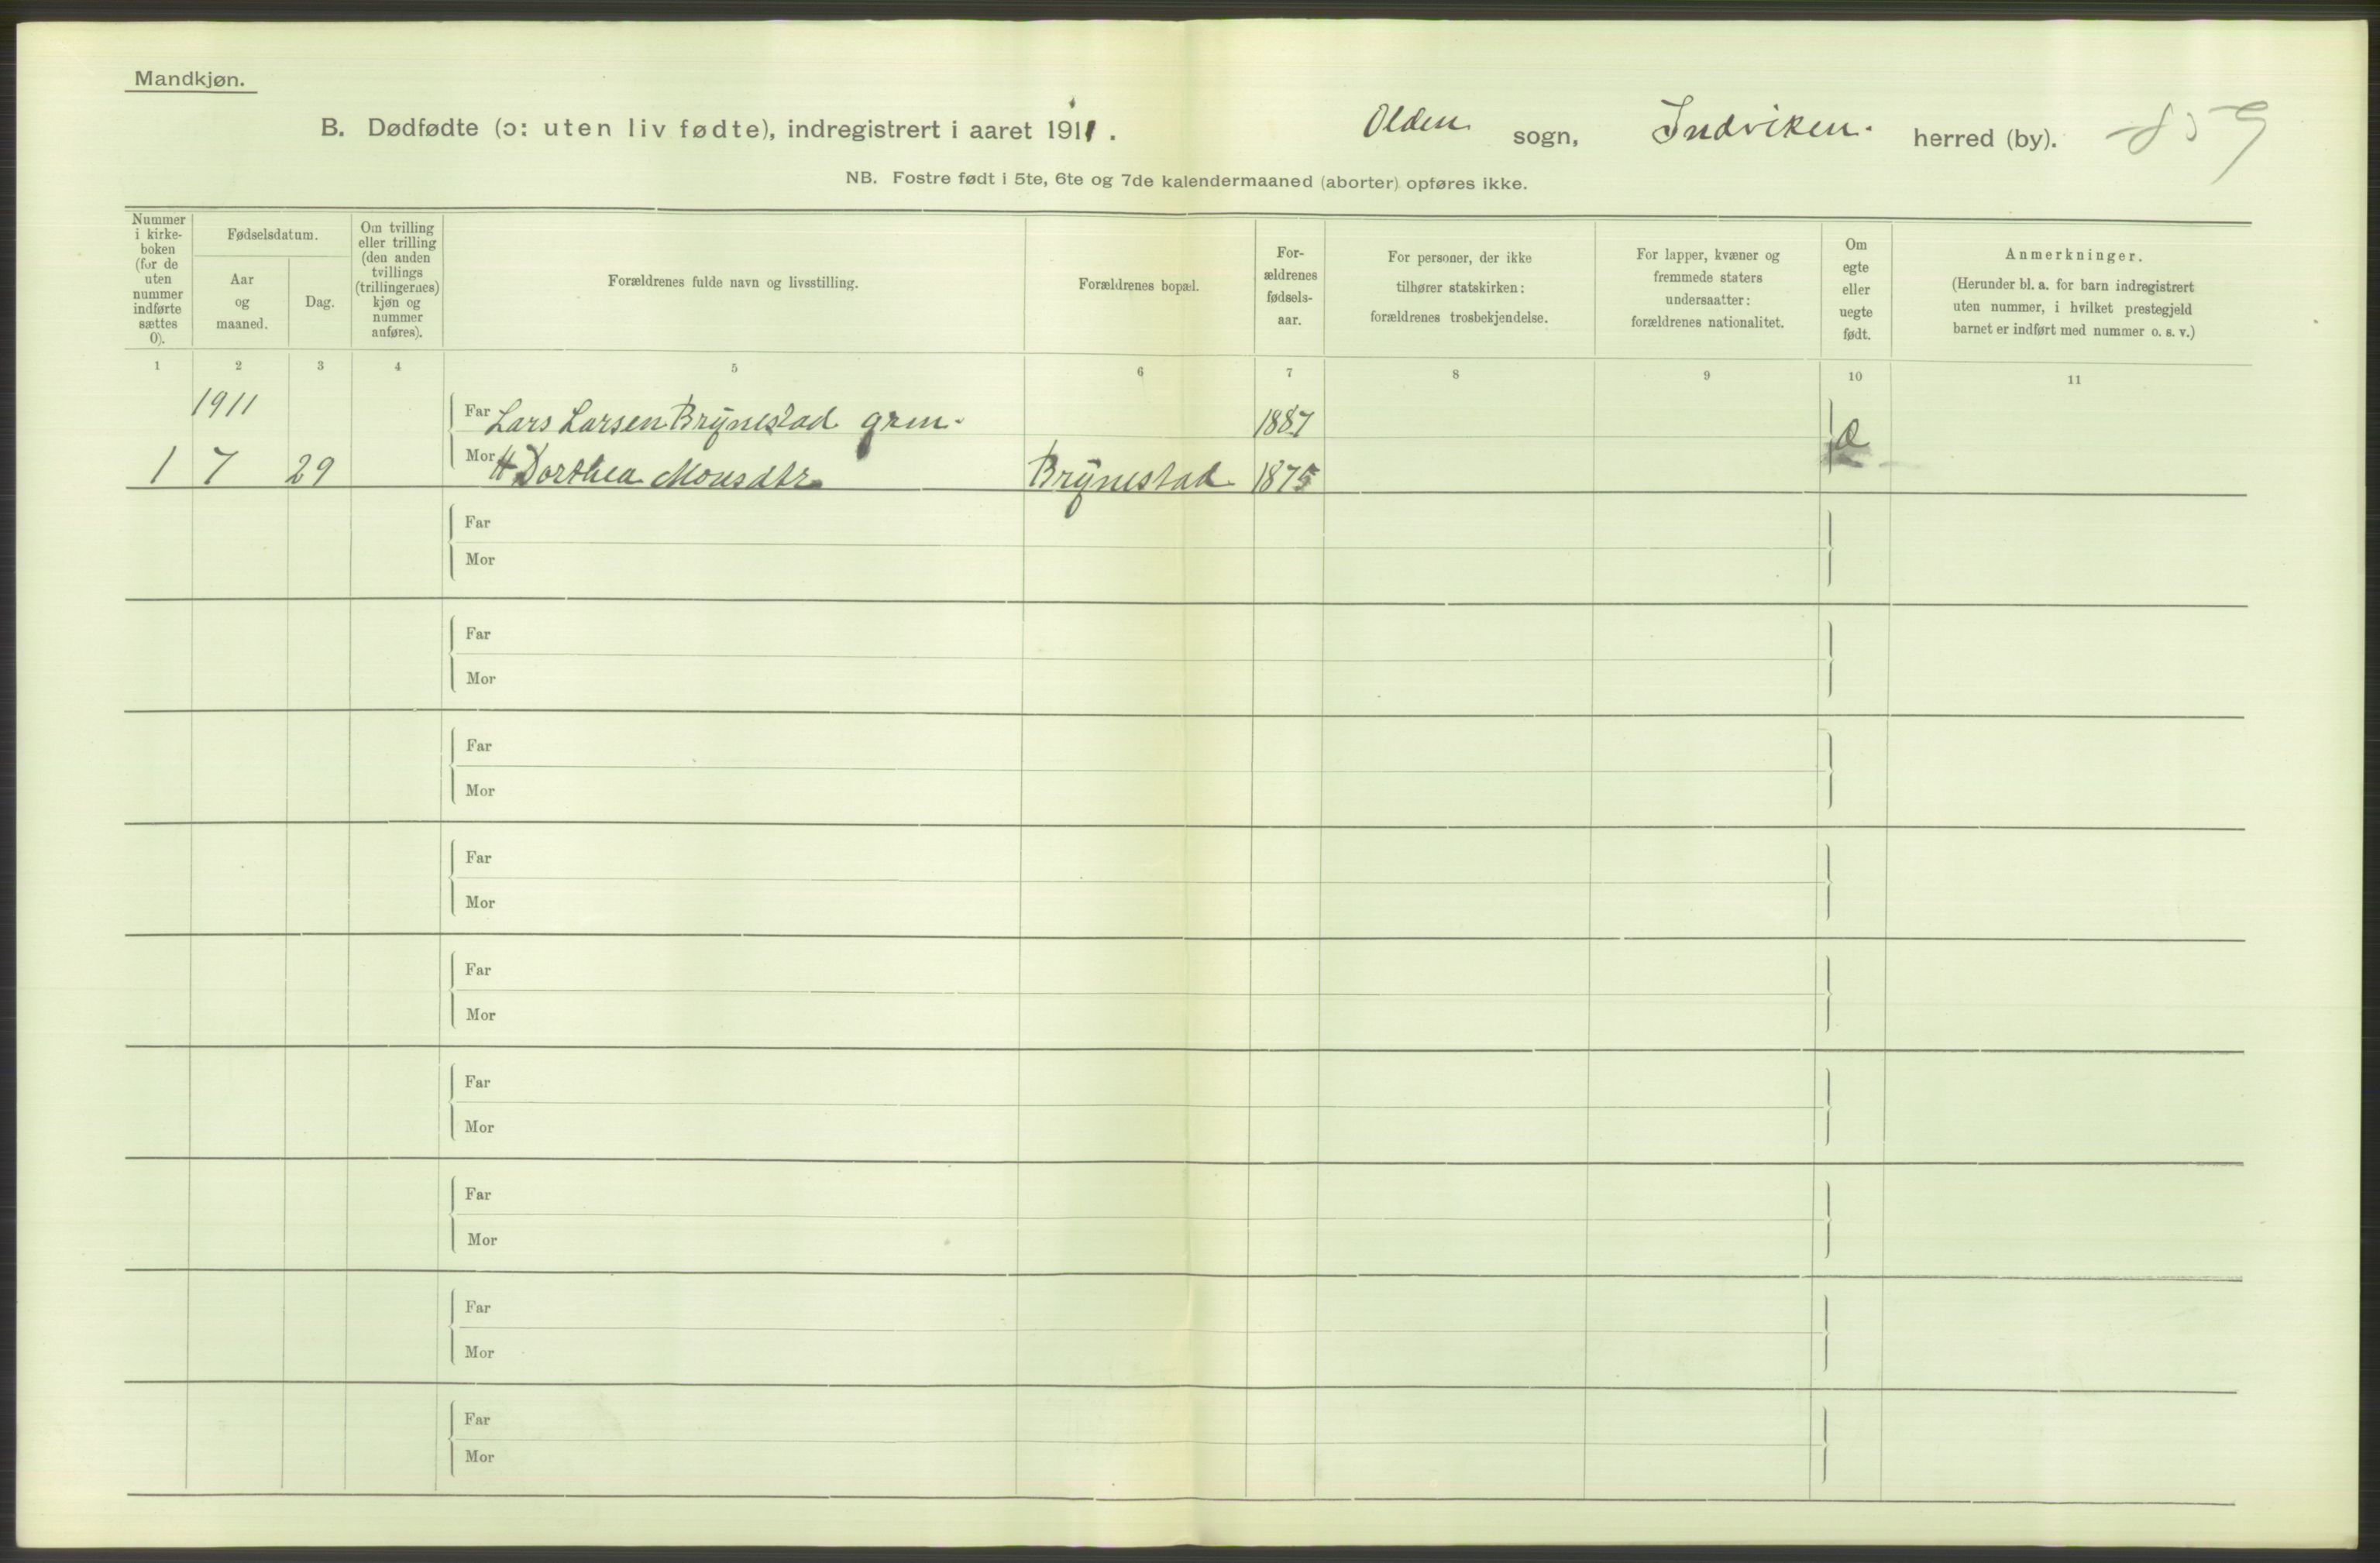 Mandkjøn.
B. Dødfødte (ɔ: uten liv fødte), indregistrert i aaret 1911. Olden sogn, Indviken herred (by). 859
NB. Fostre født i 5te, 6te og 7de kalendermaaned (aborter) opføres ikke.
Nummer
i kirke-
boken
(for de
uten
nummer
indførte
sættes
0).
Fødselsdatum.
Aar
og
maaned.
Dag.
Om tvilling
eller trilling
(den anden
tvillings
(trillingernes)
kjøn og
nummer
anføres).
Forældrenes fulde navn og livsstilling.
Forældrenes bopæl.
For-
ældrenes
fødsels-
aar.
For personer, der ikke
tilhører statskirken:
forældrenes trosbekjendelse.
For lapper, kvæner og
fremmede staters
undersaatter:
forældrenes nationalitet.
Om
egte
eller
uegte
født.
Anmerkninger.
(Herunder bl. a. for barn indregistrert
uten nummer, i hvilket prestegjeld
barnet er indført med nummer o. s. v.)
1 2 3 4 5 6 7 8 9 10 11
1911 Far Lars Larsen Brynestad grm. 1887
1 7 29 Mor H Dorthea Monsdtr. Brynestad 1875
Far
Mor
Far
Mor
Far
Mor
Far
Mor
Far
Mor
Far
Mor
Far
Mor
Far
Mor
Far
Mor